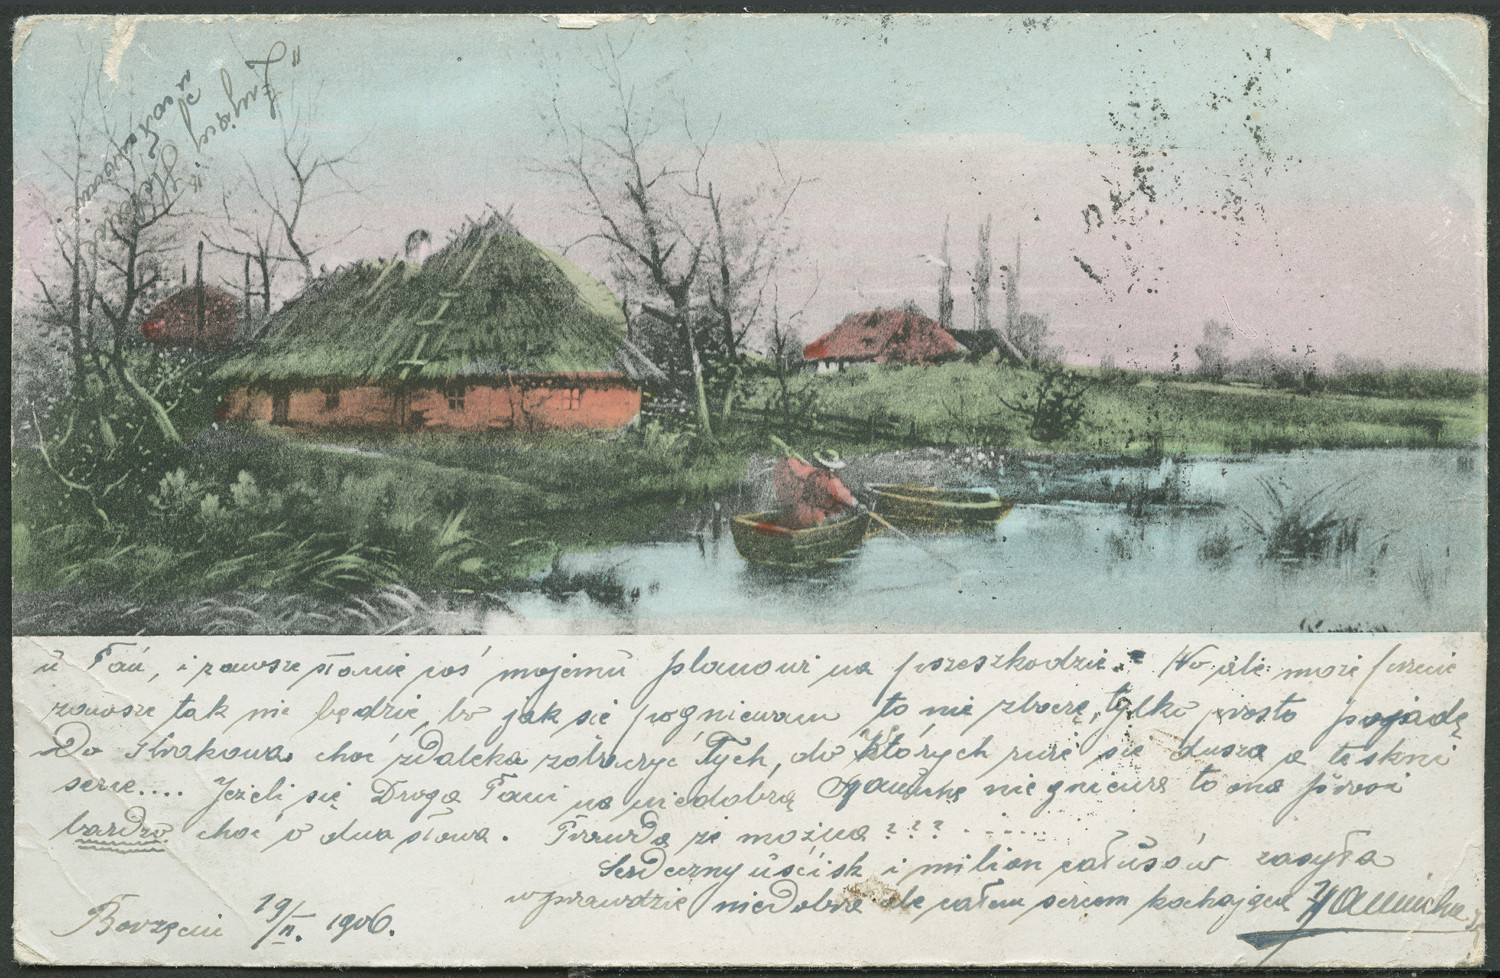 u Pań, i zawsze stanie coś mojemu planowi na przeszkodzie. No ale może przecie
zawsze tak nie będzie, bo jak się pogniewam to nie zboczę, tylko prosto pojadę
do Krakowa choć zdaleka zobaczyć Tych, do których rwie się dusza a tęskni
serce.... Jeżeli się Droga Pani na niedobrą Janinkę nie gniewa to ona prosi
bardzo choć o dwa słowa. Prawda że można???.......
Serdeczny uścisk i milion całusów zasyła
wprawdzie niedobra ale całem sercem kochająca Janinka
Borzęcin 19/II. 1906.